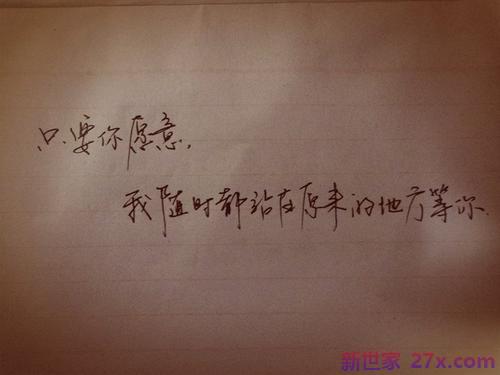 只要你愿意,
我随时都站在原来的地方等你
新世家 27x.com